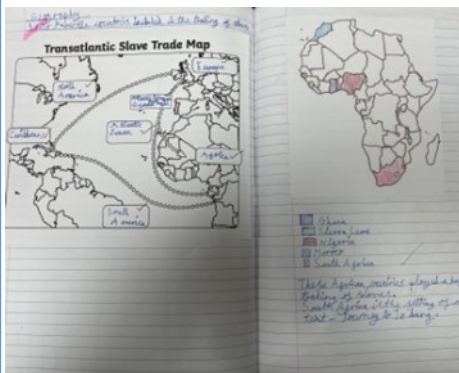 Geography
countries included in the trading of
Transatlantic Slave Trade Map
North
America
Europe
Caribbean
Africa
South
America
Ghana
Sierra Leone
Nigeria
Morocco
South Africa
These African countries played a
trading of slaves.
South Africa is the setting of
text - Journey to Jo'burg.